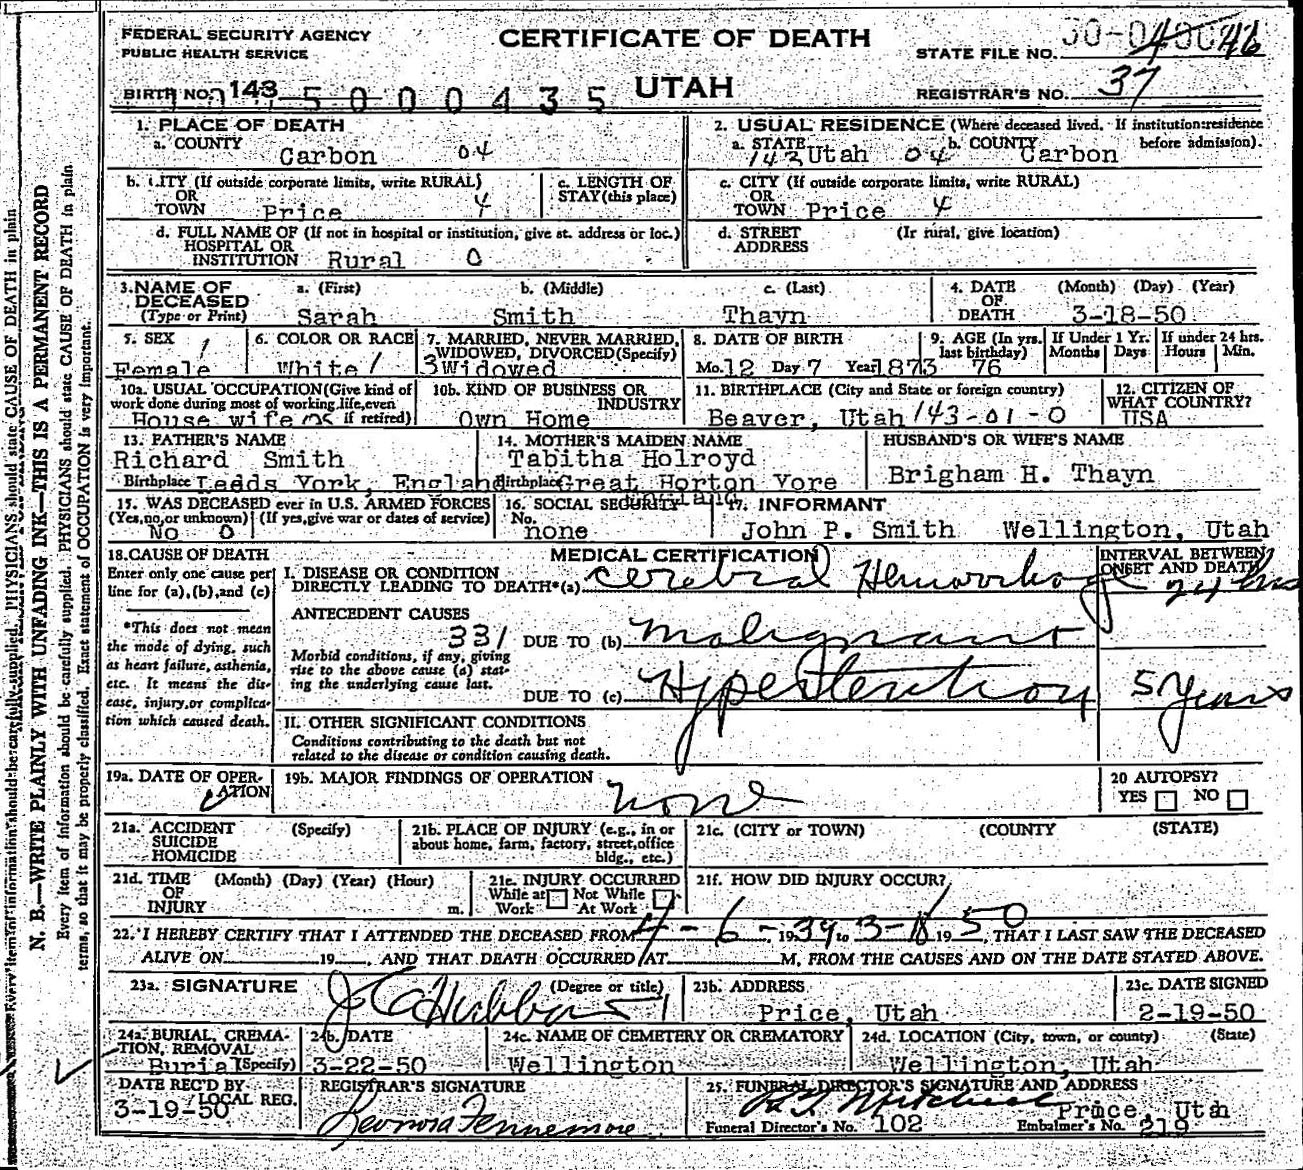 FEDERAL SECURITY AGENCY
PUBLIC HEALTH SERVICE
CERTIFICATE OF DEATH
UTAH
STATE FILE NO. 46
REGISTRAR'S NO. 37
BIRTH NO. 143 5 0 0 0 4 3 5
1. PLACE OF DEATH
a. COUNTY Carbon 04
b. CITY (If outside corporate limits, write RURAL)
OR
TOWN Price 4
c. LENGTH OF
STAY (this place)
d. FULL NAME OF (If not in hospital or institution, give st. address or loc.)
HOSPITAL OR
INSTITUTION Rural 0
2. USUAL RESIDENCE (Where deceased lived. If institution: residence before admission).
a. STATE 143 Utah 04 b. COUNTY Carbon
c. CITY (If outside corporate limits, write RURAL)
OR
TOWN Price 4
d. STREET (If rural, give location)
ADDRESS
3. NAME OF DECEASED (Type or Print)
a. (First) b. (Middle) c. (Last)
Sarah Smith Thayn
4. DATE OF DEATH (Month) (Day) (Year)
3-18-50
5. SEX 1
Female
6. COLOR OR RACE
White 1
7. MARRIED, NEVER MARRIED,
WIDOWED, DIVORCED (Specify)
3 Widowed
8. DATE OF BIRTH
Mo. 12 Day 7 Year 1873
9. AGE (In yrs. last birthday) 76
If Under 1 Yr. Months Days
If under 24 hrs. Hours Min.
10a. USUAL OCCUPATION (Give kind of
work done during most of working life, even
if retired) House wife
10b. KIND OF BUSINESS OR
INDUSTRY
Own Home
11. BIRTHPLACE (City and State or foreign country)
Beaver, Utah 143-01-0
12. CITIZEN OF
WHAT COUNTRY?
USA
13. FATHER'S NAME
Richard Smith
Birthplace Ledds York, England
14. MOTHER'S MAIDEN NAME
Tabitha Holroyd
Birthplace Great Horton Yore
England
HUSBAND'S OR WIFE'S NAME
Brigham H. Thayn
15. WAS DECEASED ever in U.S. ARMED FORCES
(Yes, no, or unknown) (If yes, give war or dates of service)
No 0
16. SOCIAL SECURITY
No.
none
17. INFORMANT
John P. Smith Wellington, Utah
18. CAUSE OF DEATH
Enter only one cause per
line for (a), (b), and (c)
*This does not mean
the mode of dying, such
as heart failure, asthenia,
etc. It means the dis-
ease, injury, or complica-
tion which caused death.
MEDICAL CERTIFICATION
I. DISEASE OR CONDITION
DIRECTLY LEADING TO DEATH*(a) Cerebral Hemorrhage
ANTECEDENT CAUSES
331
Morbid conditions, if any, giving
rise to the above cause (a) stat-
ing the underlying cause last.
DUE TO (b) Malignant
DUE TO (c) Hypertention
II. OTHER SIGNIFICANT CONDITIONS
Conditions contributing to the death but not
related to the disease or condition causing death.
INTERVAL BETWEEN
ONSET AND DEATH
24 hrs
5 Years
19a. DATE OF OPER-
ATION
19b. MAJOR FINDINGS OF OPERATION
none
20 AUTOPSY?
YES NO
21a. ACCIDENT (Specify)
SUICIDE
HOMICIDE
21b. PLACE OF INJURY (e.g., in or
about home, farm, factory, street, office
bldg., etc.)
21c. (CITY or TOWN) (COUNTY (STATE)
21d. TIME (Month) (Day) (Year) (Hour)
OF
INJURY m.
21e. INJURY OCCURRED
While at Work Not While At Work
21f. HOW DID INJURY OCCUR?
22. I HEREBY CERTIFY THAT I ATTENDED THE DECEASED FROM 4-6-1939 to 3-18 1950, THAT I LAST SAW THE DECEASED
ALIVE ON 19 , AND THAT DEATH OCCURRED AT M, FROM THE CAUSES AND ON THE DATE STATED ABOVE.
23a. SIGNATURE (Degree or title)
23b. ADDRESS
Price, Utah
23c. DATE SIGNED
2-19-50
24a. BURIAL, CREMA-
TION, REMOVAL
(Specify) Burial
24b. DATE
3-22-50
24c. NAME OF CEMETERY OR CREMATORY
Wellington
24d. LOCATION (City, town, or county) (State)
Wellington, Utah
DATE REC'D BY
LOCAL REG.
3-19-50
REGISTRAR'S SIGNATURE
Leonora Fennemore
25. FUNERAL DIRECTOR'S SIGNATURE AND ADDRESS
Price, Utah
Funeral Director's No. 102 Embalmer's No. 219
N. B.—WRITE PLAINLY WITH UNFADING INK—THIS IS A PERMANENT RECORD
Every item of information should be carefully supplied. PHYSICIANS should state CAUSE OF DEATH in plain
terms, so that it may be properly classified. Exact statement of OCCUPATION is very important.